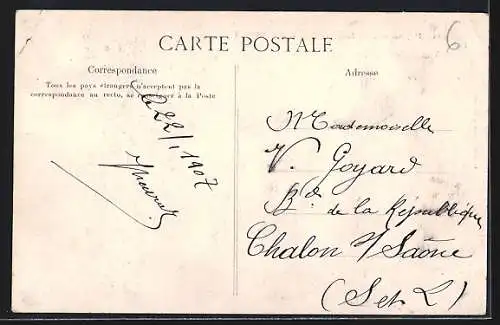 6
CARTE POSTALE
Correspondance
Tous les pays étrangers n'acceptent pas la
correspondance au recto, se renseigner à la Poste
Le 22/1 1907
Adresse
Mademoiselle
V. Goyard
Bd de la République
Chalon s/Saône
(S et L)